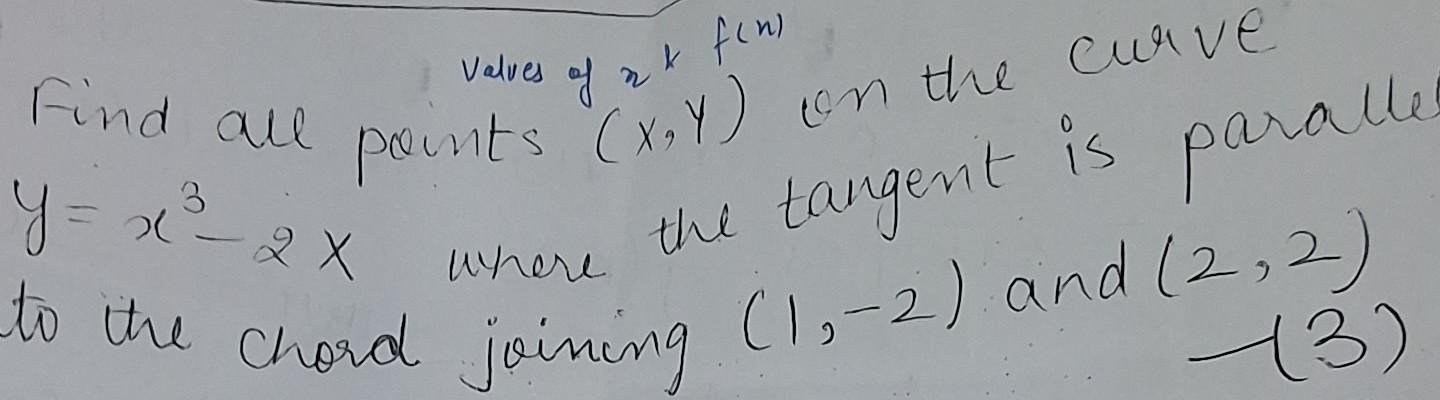 values of x & f(x)
Find all points (x, y) on the curve
y = x³ - 2x where the tangent is parallel
to the chord joining (1, -2) and (2, 2)
-(3)